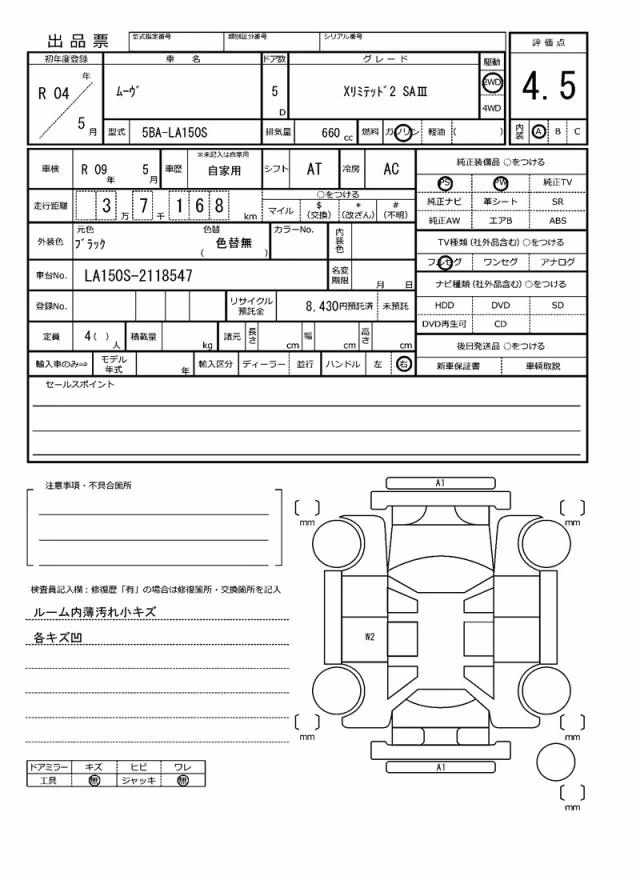 出品票
型式指定番号 類別区分番号 シリアル番号
評価点
4.5
初年度登録 車名 ドア数 グレード 駆動
R 04 年 5 月
ムーヴ 5 D Xリミテッド2 SAⅢ 2WD 4WD
型式 5BA-LA150S 排気量 660 cc 燃料 ガソリン 軽油 ( )
内装 A B C
車検 R 09 年 5 月 車歴 ※未記入は自家用 自家用 シフト AT 冷房 AC
走行距離 3 万 7 千 1 6 8 km
○をつける
マイル $ (交換) * (改ざん) # (不明)
外装色 元色 ブラック 色替 ( 色替無 ) カラーNo. 内装色
車台No. LA150S-2118547 名変期限 月 日
登録No. リサイクル預託金 8,430円預託済 未預託
定員 4( ) 人 積載量 kg 諸元 長さ cm 幅 cm 高さ cm
輸入車のみ⇒ モデル年式 年 輸入区分 ディーラー 並行 ハンドル 左 右
純正装備品 ○をつける
PS PW 純正TV
純正ナビ 革シート SR
純正AW エアB ABS
TV種類(社外品含む)○をつける
フルセグ ワンセグ アナログ
ナビ種類(社外品含む)○をつける
HDD DVD SD
DVD再生可 CD
後日発送品 ○をつける
新車保証書 車輌取説
セールスポイント
注意事項・不具合箇所
検査員記入欄:修復歴「有」の場合は修復箇所・交換箇所を記入
ルーム内薄汚れ小キズ
各キズ凹
ドアミラー キズ ヒビ ワレ
工具 無 ジャッキ 無
A1
[ ] mm
[ ] mm
W2
[ ] mm
[ ] mm
A1
[ ] mm